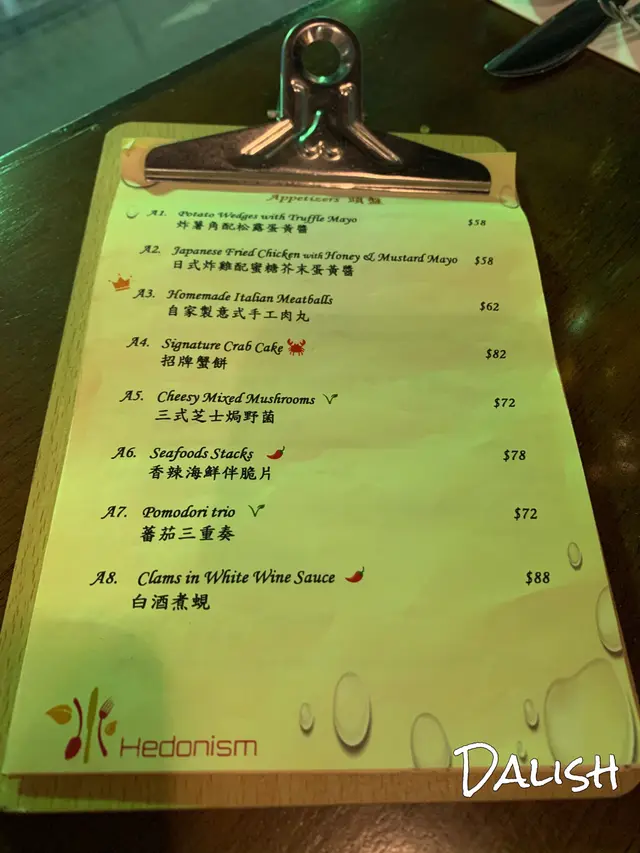 Appetizers 頭盤
A1. Potato Wedges with Truffle Mayo $58
炸薯角配松露蛋黃醬
A2. Japanese Fried Chicken with Honey & Mustard Mayo $58
日式炸雞配蜜糖芥末蛋黃醬
A3. Homemade Italian Meatballs $62
自家製意式手工肉丸
A4. Signature Crab Cake $82
招牌蟹餅
A5. Cheesy Mixed Mushrooms $72
三式芝士焗野菌
A6. Seafoods Stacks $78
香辣海鮮伴脆片
A7. Pomodori trio $72
蕃茄三重奏
A8. Clams in White Wine Sauce $88
白酒煮蜆
Hedonism
DALISH